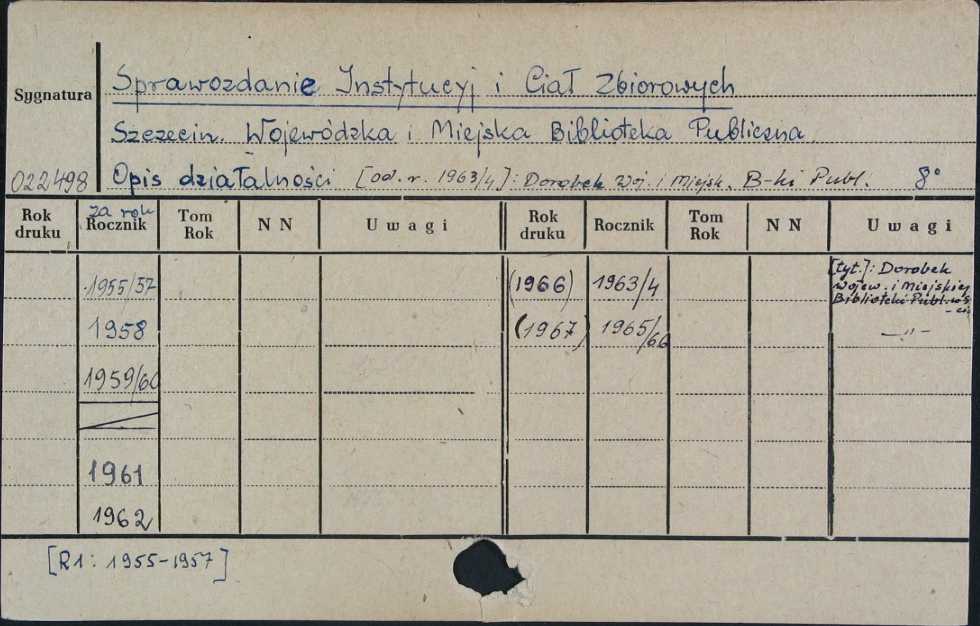 Sprawozdanie Instytucyj i Ciał Zbiorowych
Sygnatura
Szczecin. Wojewódzka i Miejska Biblioteka Publiczna.
022498 Opis działalności [od. r. 1963/4]: Dorobek Woj. i Miejsk. B-ki Publ. 8°
Rok druku za rok Rocznik Tom Rok N N Uwagi Rok druku Rocznik Tom Rok N N Uwagi
1955/57 (1966) 1963/4 [tyt.]: Dorobek
Wojew. i Miejskiej
Biblioteki Publ.
1958 (1967) 1965/66 —„—
1959/60
1961
1962
[R1: 1955-1957]